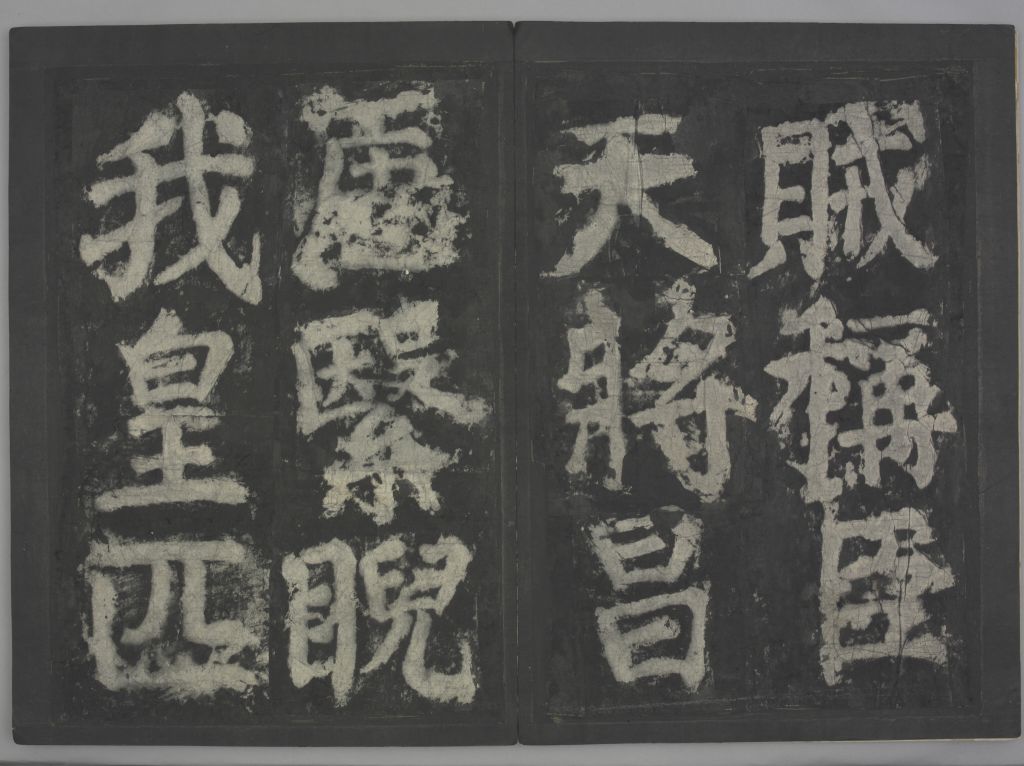 賊稱臣
天將昌
唐繄睨
我皇匹